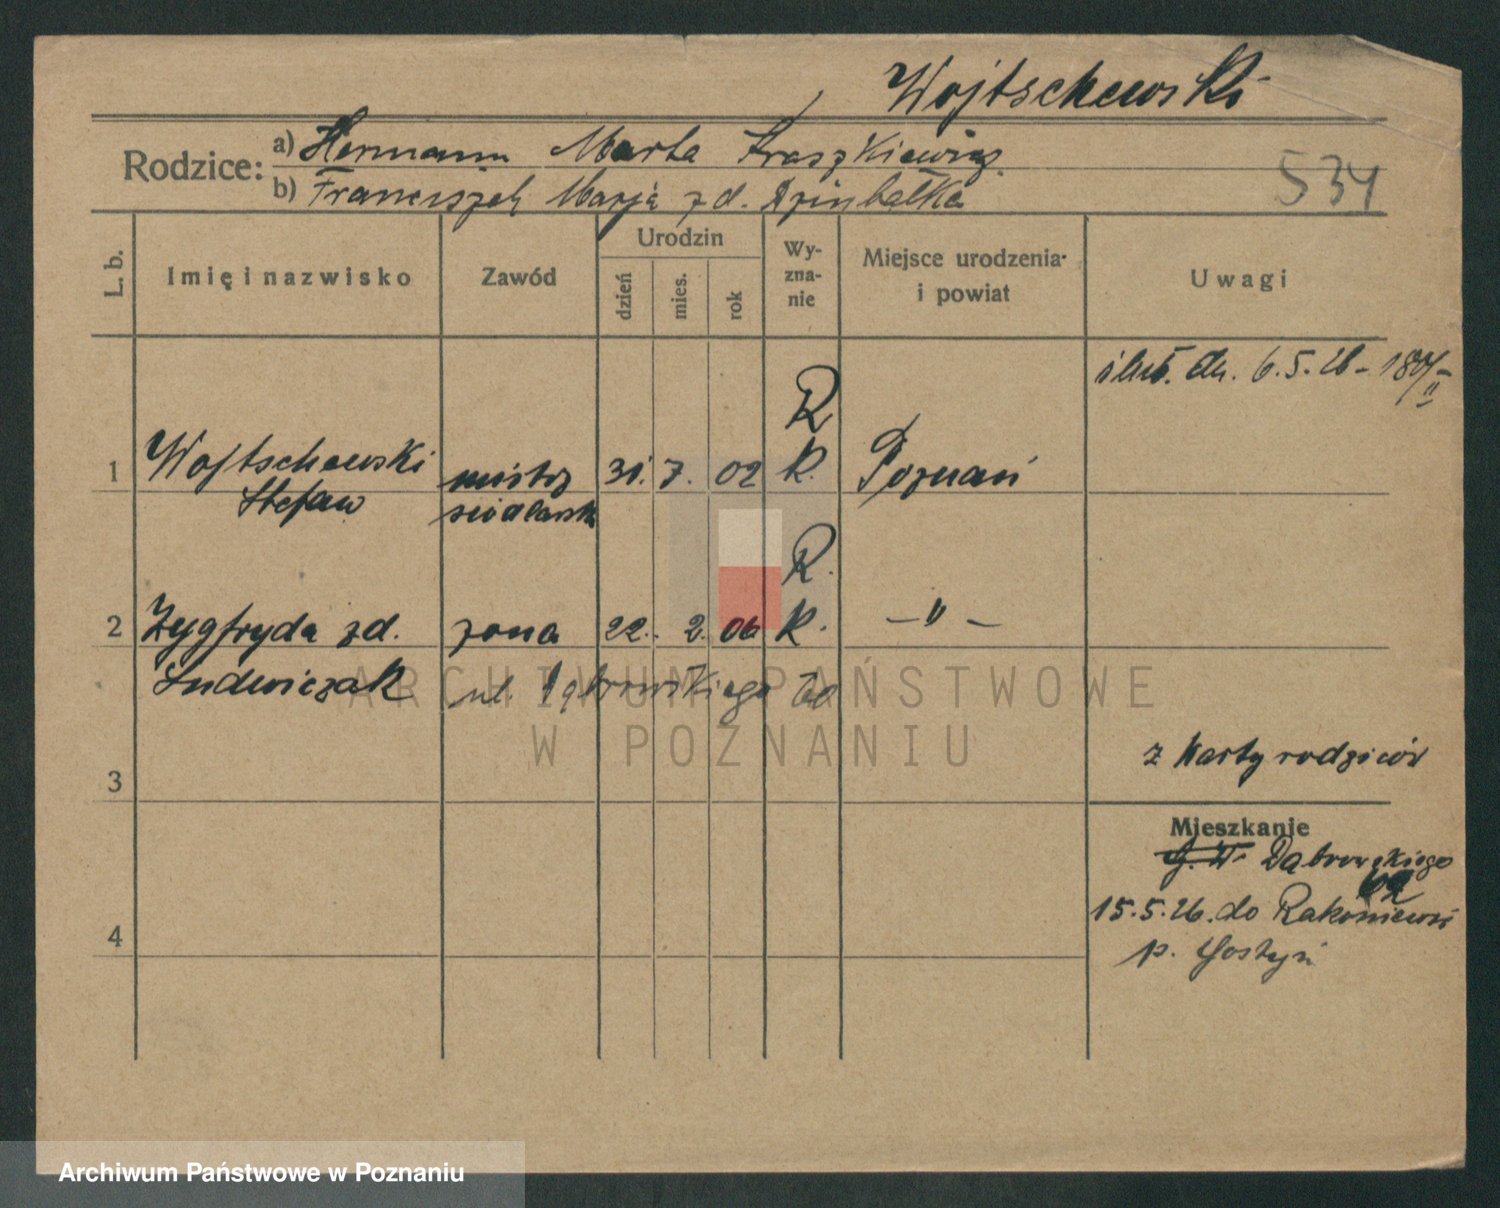 Wojtschewski
Rodzice: a) Hermann Marta Fraszkiewicz
b) Franciszek Marja zd.
534
L. b. Imię i nazwisko Zawód Urodzin dzień mies. rok Wyznanie Miejsce urodzenia i powiat Uwagi
ślub. dn. 6.5.26 -
1 Wojtschewski Stefan mistrz siodlarski 31. 7. 02 R. K. Poznań
2 Zygfryda zd. Ludwiczak żona 22. 2. 06 R. K. - " -
ul. Dąbrowskiego
3
z Karty rodziców
Mieszkanie
Dąbrowskiego
15.5.26. do Rakoniewic
4
p. Gostyń
ARCHIWUM PAŃSTWOWE
W POZNANIU
Archiwum Państwowe w Poznaniu